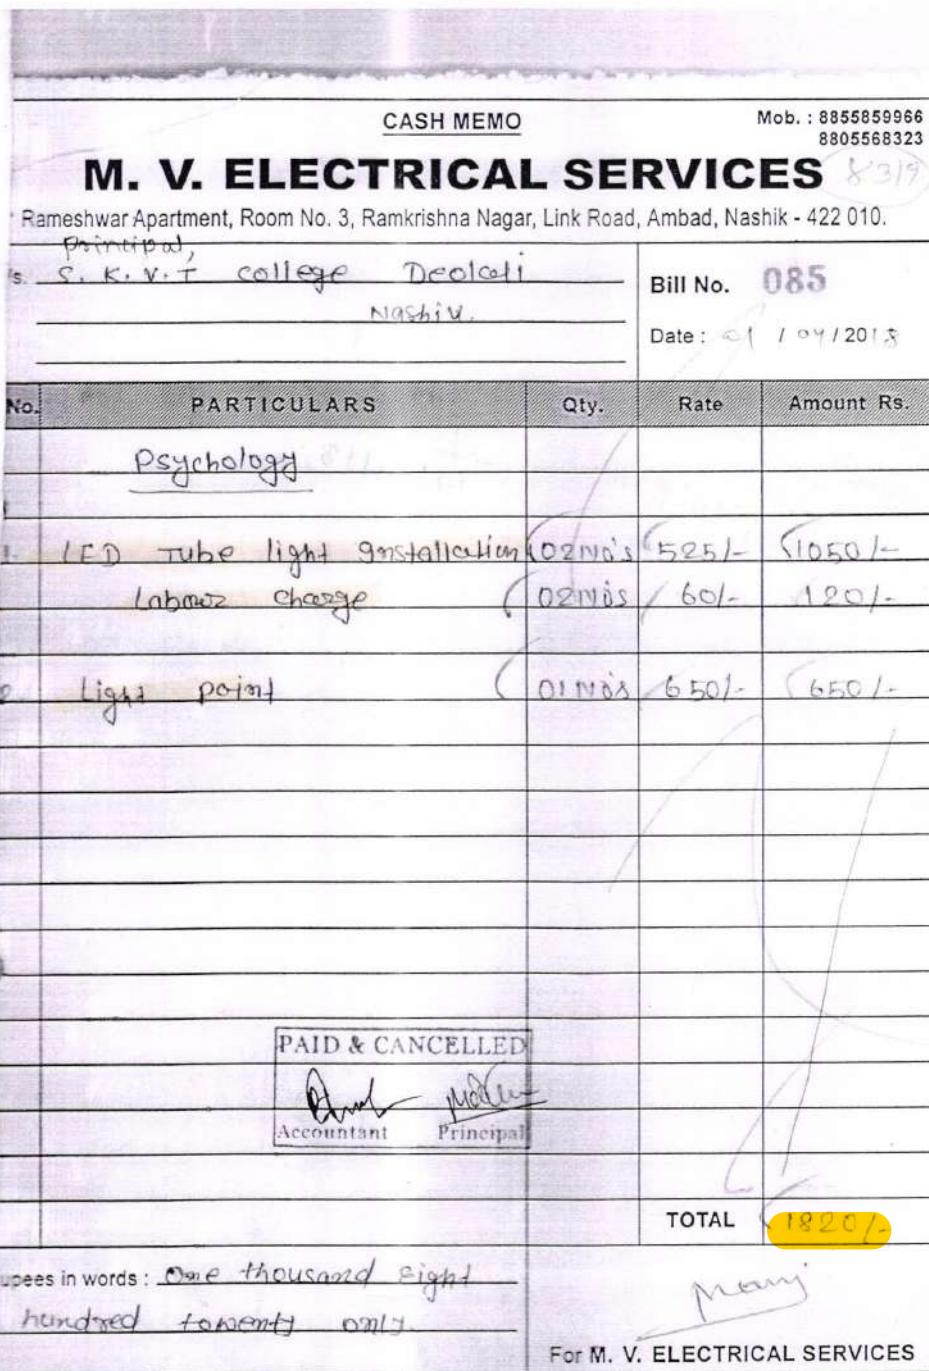 CASH MEMO
Mob. : 8855859966
8805568323
M. V. ELECTRICAL SERVICES
8319
Rameshwar Apartment, Room No. 3, Ramkrishna Nagar, Link Road, Ambad, Nashik - 422 010.
Principal,
s. S. K. V. T college Deolali
Nashik.
Bill No. 085
Date : 01 / 04 / 2018
No. PARTICULARS Qty. Rate Amount Rs.
Psychology
1. LED Tube light Installation 02 No's 525/- 1050/-
Labour charge 02 No's 60/- 120/-
2. Light point 01 No's 650/- 650/-
PAID & CANCELLED
Accountant Principal
TOTAL 1820/-
upees in words : One thousand Eight
hundred towenty only.
For M. V. ELECTRICAL SERVICES